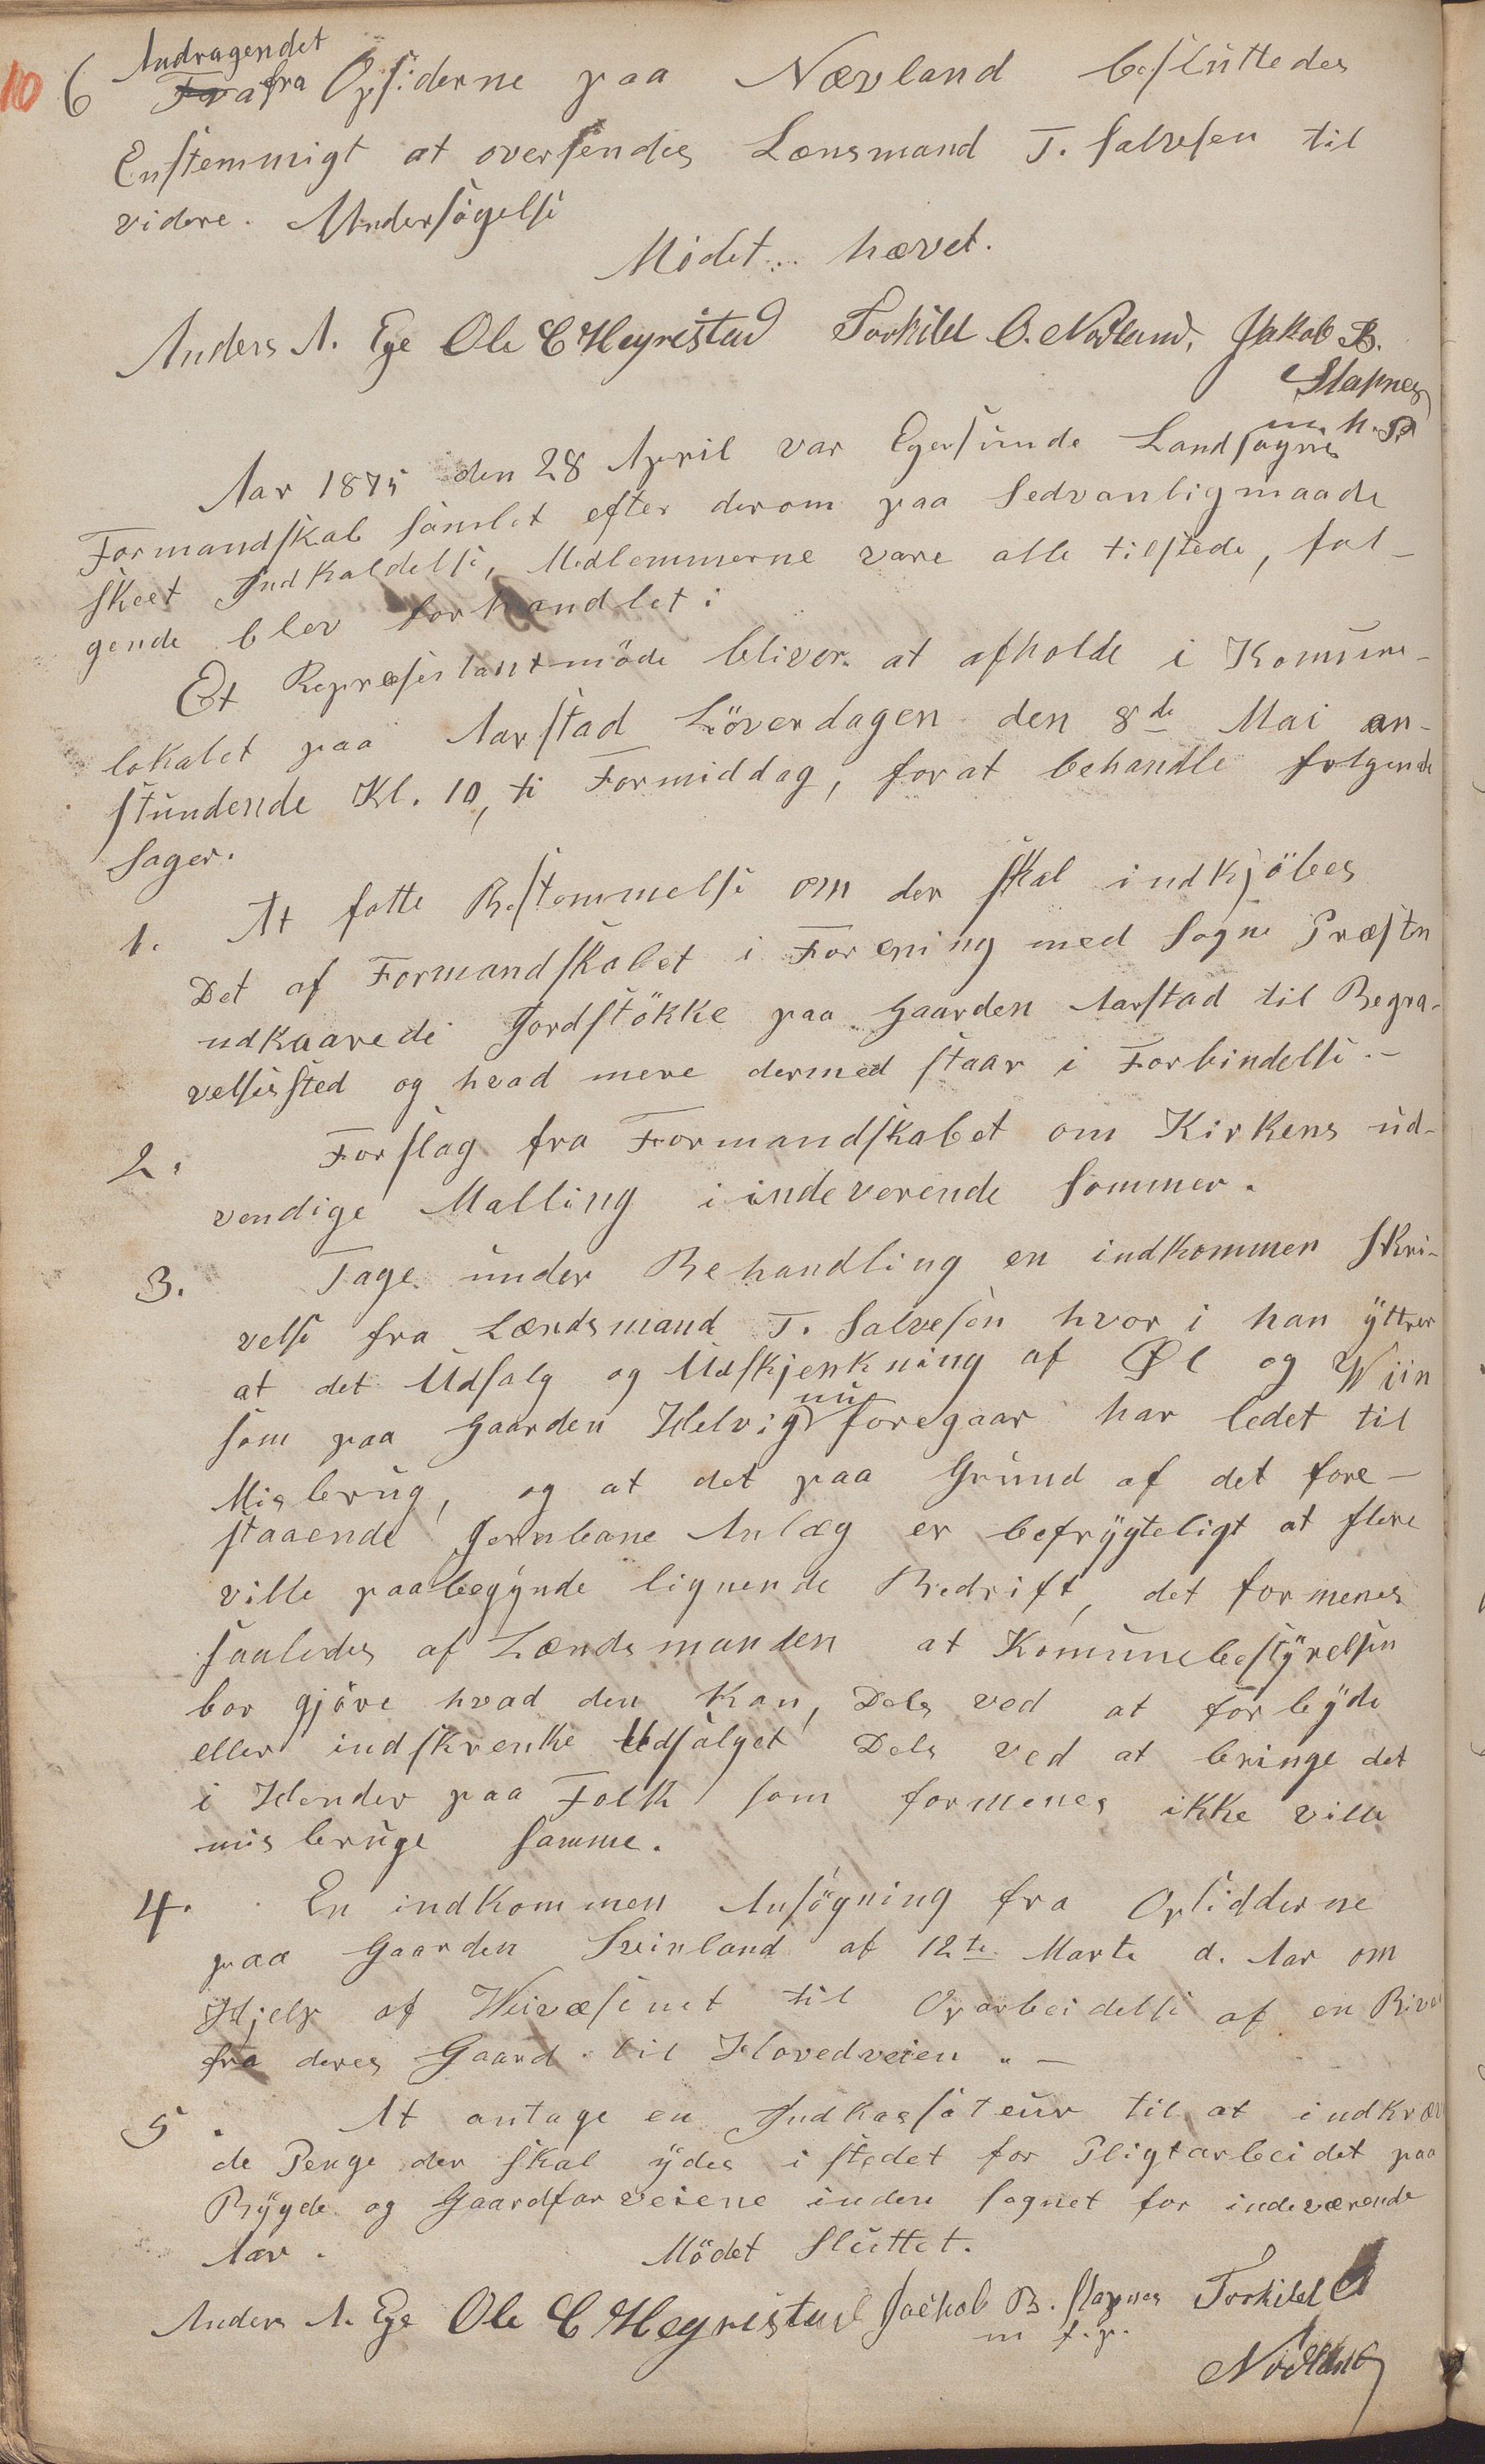 10 6 Andragendet
fra Opsiderne paa Nævland besluttedes
Enstemmigt at oversendes Lensmand T. Salvesen til
videre. Undersøgelse
Mödet hævet.
Anders A. Ege Ole C Hegrestad Torkild O. Nodland, Jakob B.
Slapnes
m. h. P.
Aar 1875 den 28 April var Egersunds Landsogns
Formandskab samlet efter derom paa sedvanligmaade
skeet Indkaldelse, Medlemmerne vare alle tilstede, fal-
gende blev forhandlet:
Et Repræsentantmöde bliver at afholde i Komune-
lokalet paa Aarstad Löverdagen den 8de Mai an-
stundende Kl. 10, ti Formiddag, forat behandle folgende
Sager.
1. At fatte Bestemmelse om der skal indkjöbes
Det af Formandskabet i Forening med Sogne Præsten
udkaarede Jordstökke paa Gaarden Aarstad til Begra-
velsessted og hvad mere dermed staar i Forbindelse.-
2. Forslag fra Formandskabet om Kirkens ud-
vendige Malling i indeverende Sommer.
3. Tage under Behandling en indkommen Skri-
velse fra Lændsmand T. Salvesen hvor i han yttrer
at det Udsalg og Udskjenkning af Øl og Wiin
nu
som paa Gaarden Helvig foregaar har ledet til
Misbrug, og at det paa Grund af det fore-
staaende Jernbane Anlæg er befrygteligt at flere
ville paabegynde lignende Bedrift, det formenes
saaledes af Lændsmanden at Komunebestyrelsen
bor gjöre hvad den kan, Dels ved at forbyde
eller indskrenke Udsalget Dels ved at bringe det
i Hender paa Folk som formenes ikke ville
misbruge samme.
4. En indkommen Ansögning fra Opsidderne
paa Gaarden Sveinland af 12te Marts d. Aar om
Hjelp af Veivæsenet til Oparbeidelse af en Bivei
fra deres Gaard til Hovedveien. -
5. At antage en Indkassateur til at indkræv
de Penge der skal ydes i stedet for Pligtarbeidet paa
Bygde og Gaardfarveiene inden Sognet for indeværende
Aar. Mödet Sluttet.
Anders A. Ege Ole C Hegrestad Jachob B. Slapnes Torkild O
m f. p.
Nodland